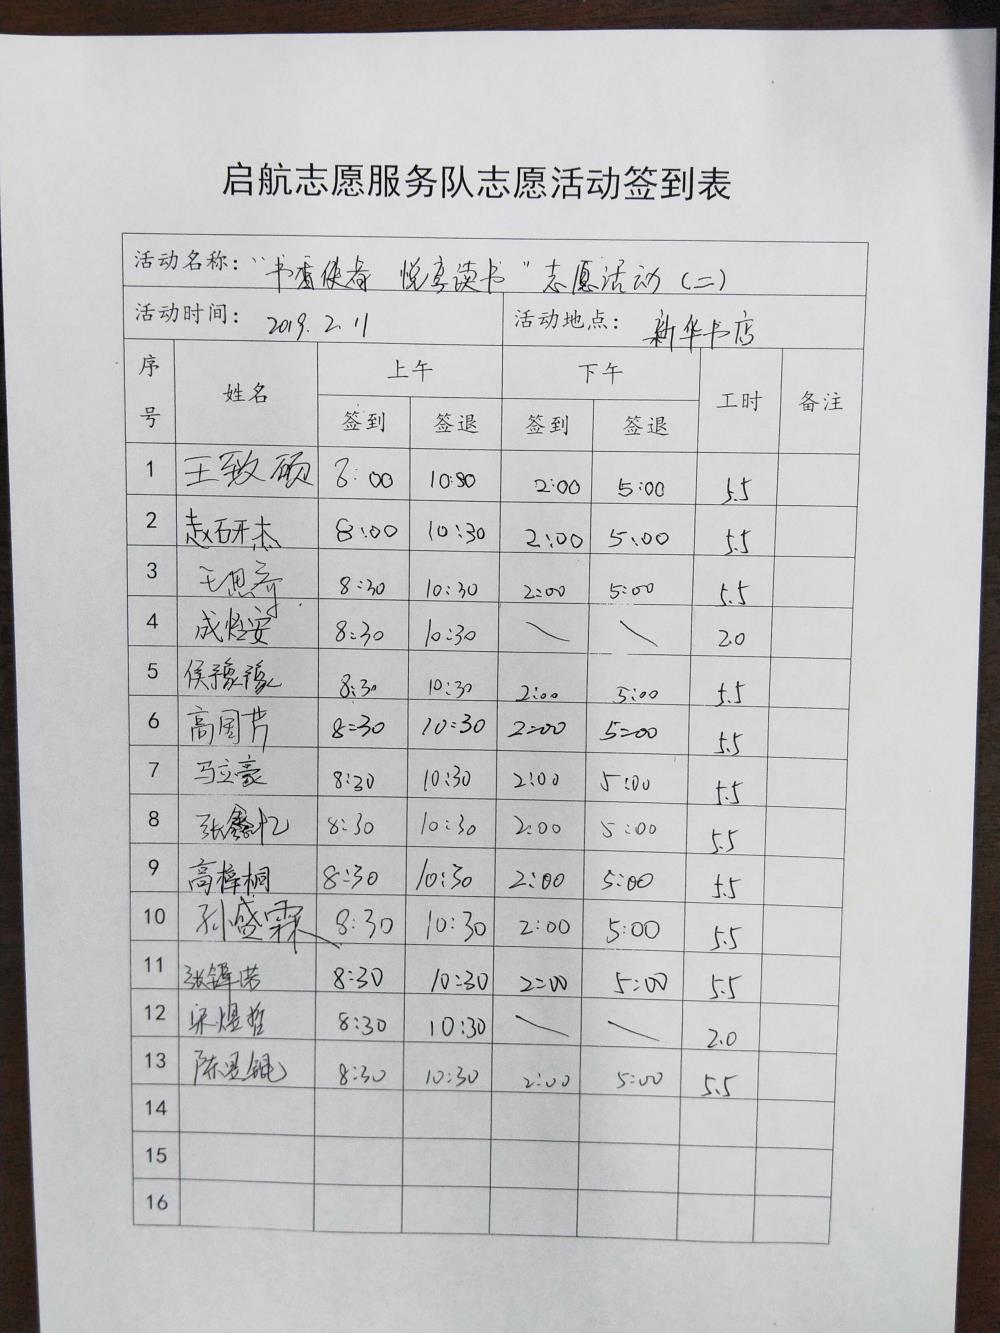 启航志愿服务队志愿活动签到表
活动名称：“书香使者 悦享读书”志愿活动（二）
活动时间：2019.2.11 活动地点：新华书店
序号 姓名 上午 下午 工时 备注
签到 签退 签到 签退
1 王致硕 8:00 10:30 2:00 5:00 5.5
2 赵研杰 8:00 10:30 2:00 5:00 5.5
3 王思齐 8:30 10:30 2:00 5:00 5.5
4 成悟安 8:30 10:30 \ \ 2.0
5 侯豫豫 8:30 10:30 2:00 5:00 5.5
6 高国芹 8:30 10:30 2:00 5:00 5.5
7 马立豪 8:30 10:30 2:00 5:00 5.5
8 张鑫忆 8:30 10:30 2:00 5:00 5.5
9 高樟桐 8:30 10:30 2:00 5:00 5.5
10 孙盛霖 8:30 10:30 2:00 5:00 5.5
11 张铎诺 8:30 10:30 2:00 5:00 5.5
12 宋煜哲 8:30 10:30 \ \ 2.0
13 陈昱锟 8:30 10:30 2:00 5:00 5.5
14
15
16